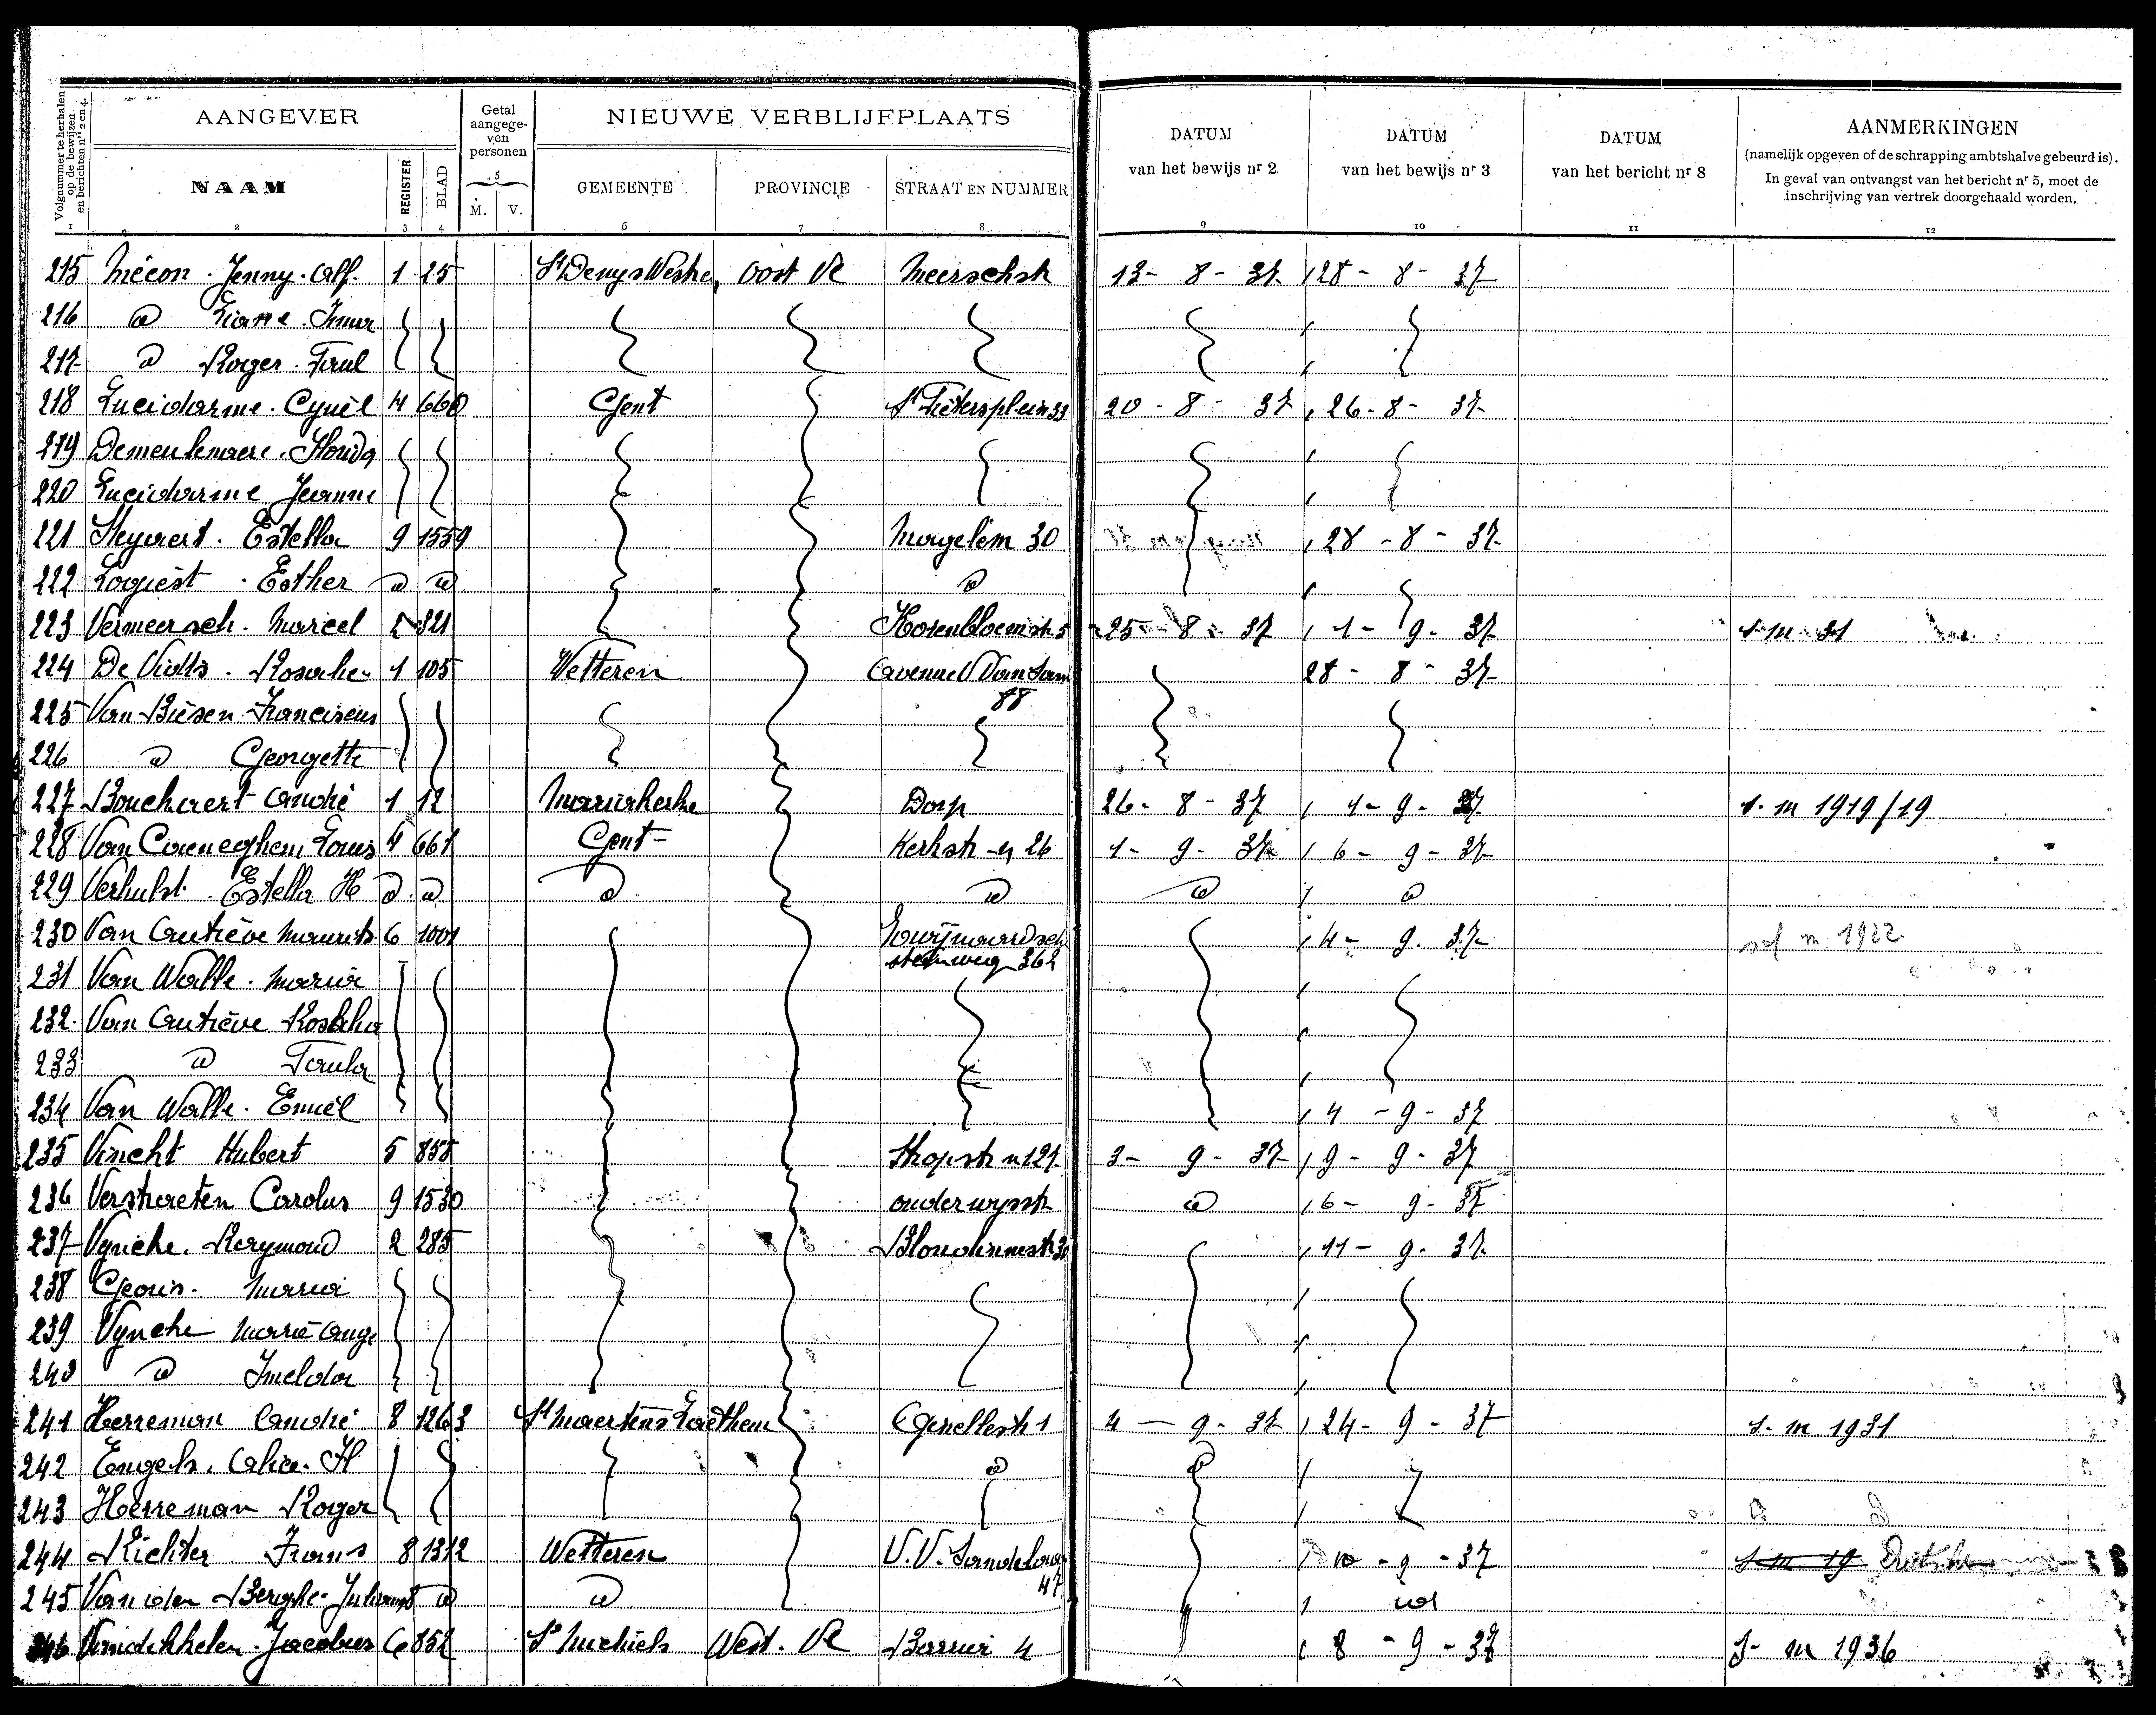 Volgnummer te herhalen op de bewijzen en berichten nrs 2 en 4.
AANGEVER
Getal aangegeven personen
NIEUWE VERBLIJFPLAATS
DATUM van het bewijs nr 2
DATUM van het bewijs nr 3
DATUM van het bericht nr 8
AANMERKINGEN
(namelijk opgeven of de schrapping ambtshalve gebeurd is).
In geval van ontvangst van het bericht nr 5, moet de
inschrijving van vertrek doorgehaald worden.
NAAM REGISTER BLAD M. V. GEMEENTE PROVINCIE STRAAT EN NUMMER
1 2 3 4 5 6 7 8 9 10 11 12
215 Mécon. Jenny. Alf. 1 25 St Denys Westre Oost Vl Meerschstr 13 - 8 - 37 28 - 8 - 37
216 d Liane. Imma
217 d Roger. Paul
218 Lucidarme. Cyriel 4 660 Gent St Pietersplein 33 20 - 8 - 37 26 - 8 - 37
219 Demeulemaere.
220 Lucidarme Jeanne
221 Steyaert. Estella 9 1559 30 28 - 8 - 37
222 Logiest. Esther d d d
223 Vermeersch. Marcel 2 321 25 - 8 - 37 1 - 9 - 37
224 1 105 Wetteren Avenue V Van Sande 88 28 - 8 - 37
225 Van Biesen Franciscus
226 d Georgette
227 Bouckaert André 1 12 Mariakerke Dorp 26 - 8 - 37 1 - 9 - 37 s. m 1919/19
228 Van Caeneghem Louis 4 661 Gent Kerkstr 26 1 - 9 - 37 6 - 9 - 37
229 Verhulst. Estella H d d d d d d
230 Van Autrève Maurits 6 1001 Zwijnaardsche steenweg 362 4 - 9 - 37 m 1922
231 Van Walle. Maria
232 Van Autrève
233 d Paula
234 Van Walle. Emiel 4 - 9 - 37
235 Hubert 5 858 Stropstr n 121 3 - 9 - 37 9 - 9 - 37
236 Verstraeten Carolus 9 1530 onderwysstr d 6 - 9 - 37
237 Vyncke. Raymond 2 285 11 - 9 - 37
238 Maria
239 Vyncke Marie Ange
240 d Imelda
241 Herreman André 8 1263 St Maertens Laethem 1 4 - 9 - 37 24 - 9 - 37 s. m 1931
242 Engels. Alice. H d d
243 Herreman Roger
244 Richter Frans 8 1312 Wetteren V.V. 47 10 - 9 - 37
245 Van den Berghe d d id
246 Jacobus 6 852 St Michiels West. Vl 4 8 - 9 - 37 s - m 1936